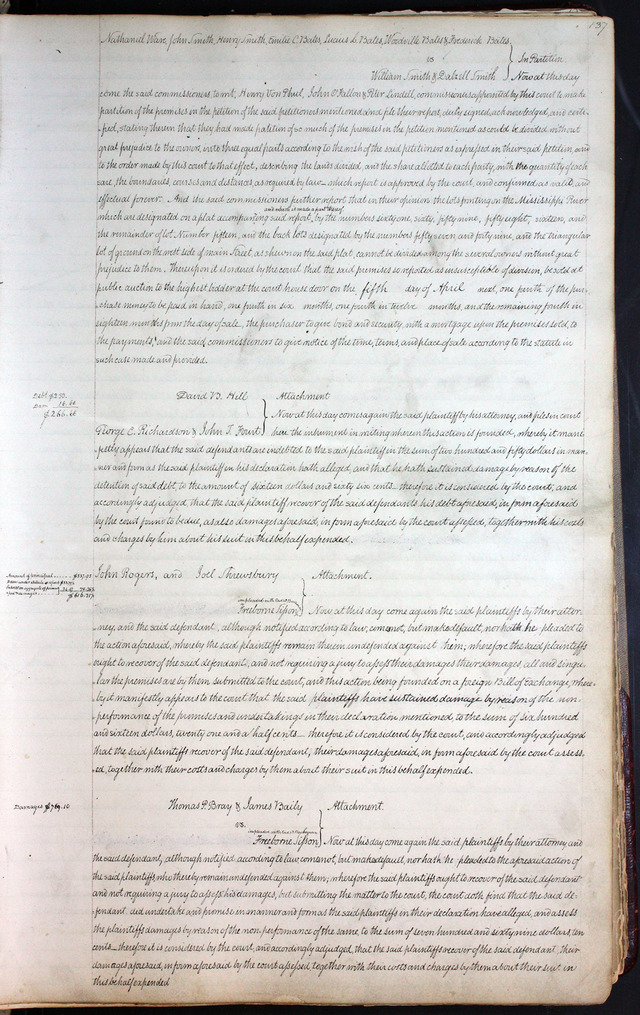 137
Nathaniel Ware, John Smith, Henry Smith, Emilie C. Bates, Lucius L. Bates, Woodville Bates & Frederick Bates
vs In Partition
William Smith & Dalzell Smith Now at this day
come the said commissioners, to wit, Henry Von Phul, John O'Fallon & Peter Lindell, commissioners appointed by this court to make
partition of the premises in the petition of the said petitioners mentioned and file their report, duly signed, acknowledged, and certi-
fied, stating therein that they had made partition of so much of the premises in the petition mentioned as could be divided without
great prejudice to the owners, into three equal parts according to the wish of the said petitioners as expressed in their said petition, and
to the order made by this court to that effect, describing the lands divided, and the share allotted to each party, with the quantity of each
the boundaries, courses and distances as required by law which report is approved by the court, and confirmed as valid, and
effectual forever. And the said commissioners further report that in their opinion the lots fronting on the Mississippi River
said report is made a part
which are designated on a plat accompanying said report, by the numbers sixty one, sixty, fifty nine, fifty eight, sixteen, and
the remainder of lot Number fifteen, and the back lots designated by the numbers fifty seven, and forty nine, and the triangular
lot of ground on the west side of main street, as shewn on the said plat, cannot be divided among the several owners without great
prejudice to them. Thereupon it is ordered by the court that the said premises so reported as insusceptible of division, be sold at
public auction to the highest bidder at the court house door on the fifth day of April next, one fourth of the pur-
chase money to be paid in hand, one fourth in six months, one fourth in twelve months, and the remaining fourth in
eighteen months from the day of sale, the purchaser to give bond and security, with a mortgage upon the premises sold, to
the payments, and the said commissioners to give notice of the time, terms, and place of sale according to the statute in
such case made and provided.
Debt $250.
Dam 16.66
$266.66
David B. Hill Attachment
Now at this day comes again the said plaintiff by his attorney, and files in court
George C. Richardson & John T. here the instrument in writing wherein this action is founded, whereby it mani-
festly appears that the said defendants are indebted to the said plaintiff in the sum of two hundred and fifty dollars in man-
ner and form as the said plaintiff in his declaration hath alleged, and that he hath sustained damage by reason of the
detention of said debt, to the amount of sixteen dollars and sixty six cents. therefore it is considered by the court, and
accordingly adjudged, that the said plaintiff recover of the said defendants his debt aforesaid, in form aforesaid
by the court found to be due, as also damages aforesaid, in form aforesaid by the court assessed, together with his costs
and charges by him about his suit in this behalf expended.
John Rogers, and Joel Shrewsbury Attachment.
Freeborne Sisson Now at this day come again the said plaintiffs by their attor-
ney, and the said defendant, although notified according to law, comes not, but makes default, nor hath he pleaded to
the action aforesaid, whereby the said plaintiffs remain therein undefended against them; wherefore the said plaintiffs
ought to recover of the said defendant, and not requiring a jury to assess their damages their damages, all and singu-
lar the premises are by them submitted to the court, and this action being founded on a foreign Bill of Exchange, where-
by it manifestly appears to the court that the said plaintiffs have sustained damage by reason of the non
performance of the promises and undertakings in their declaration mentioned, to the sum of six hundred
and sixteen dollars, twenty one and a half cents therefore it is considered by the court, and accordingly adjudged
that the said plaintiffs recover of the said defendant, their damages aforesaid, in form aforesaid by the court assess-
ed, together with their costs and charges by them about their suit in this behalf expended.
Damages $769.10
Thomas P. Bray & James Baily Attachment.
vs.
Freeborne Sisson Now at this day come again the said plaintiffs by their attorney and
the said defendant, although notified according to law, comes not, but makes default, nor hath he pleaded to the aforesaid action of
the said plaintiffs, who thereby remain undefended against them; wherefore the said plaintiffs ought to recover of the said defendant
and not requiring a jury to assess his damages, but submitting the matter to the court, the court doth find that the said de-
fendant did undertake and promise in manner and form as the said plaintiffs in their declaration have alleged, and assess
the plaintiffs damages by reason of the non performance of the same, to the sum of seven hundred and sixty nine dollars, ten
cents therefore it is considered by the court, and accordingly adjudged, that the said plaintiffs recover of the said defendant, their
damages aforesaid, in form aforesaid by the court assessed together with their costs and charges by them about their suit in
this behalf expended